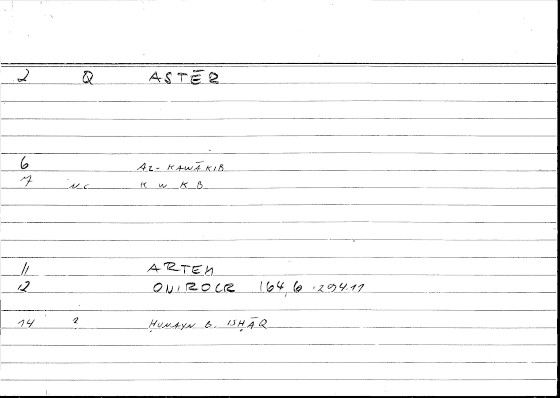 2 Q ASTĒR
6 AL-KAWĀKIB
7 N.C K W K B
11 ARTEM
12 ONIROCR 164,6 - 294.11
14 ? ḤUNAYN B. ISḤĀQ